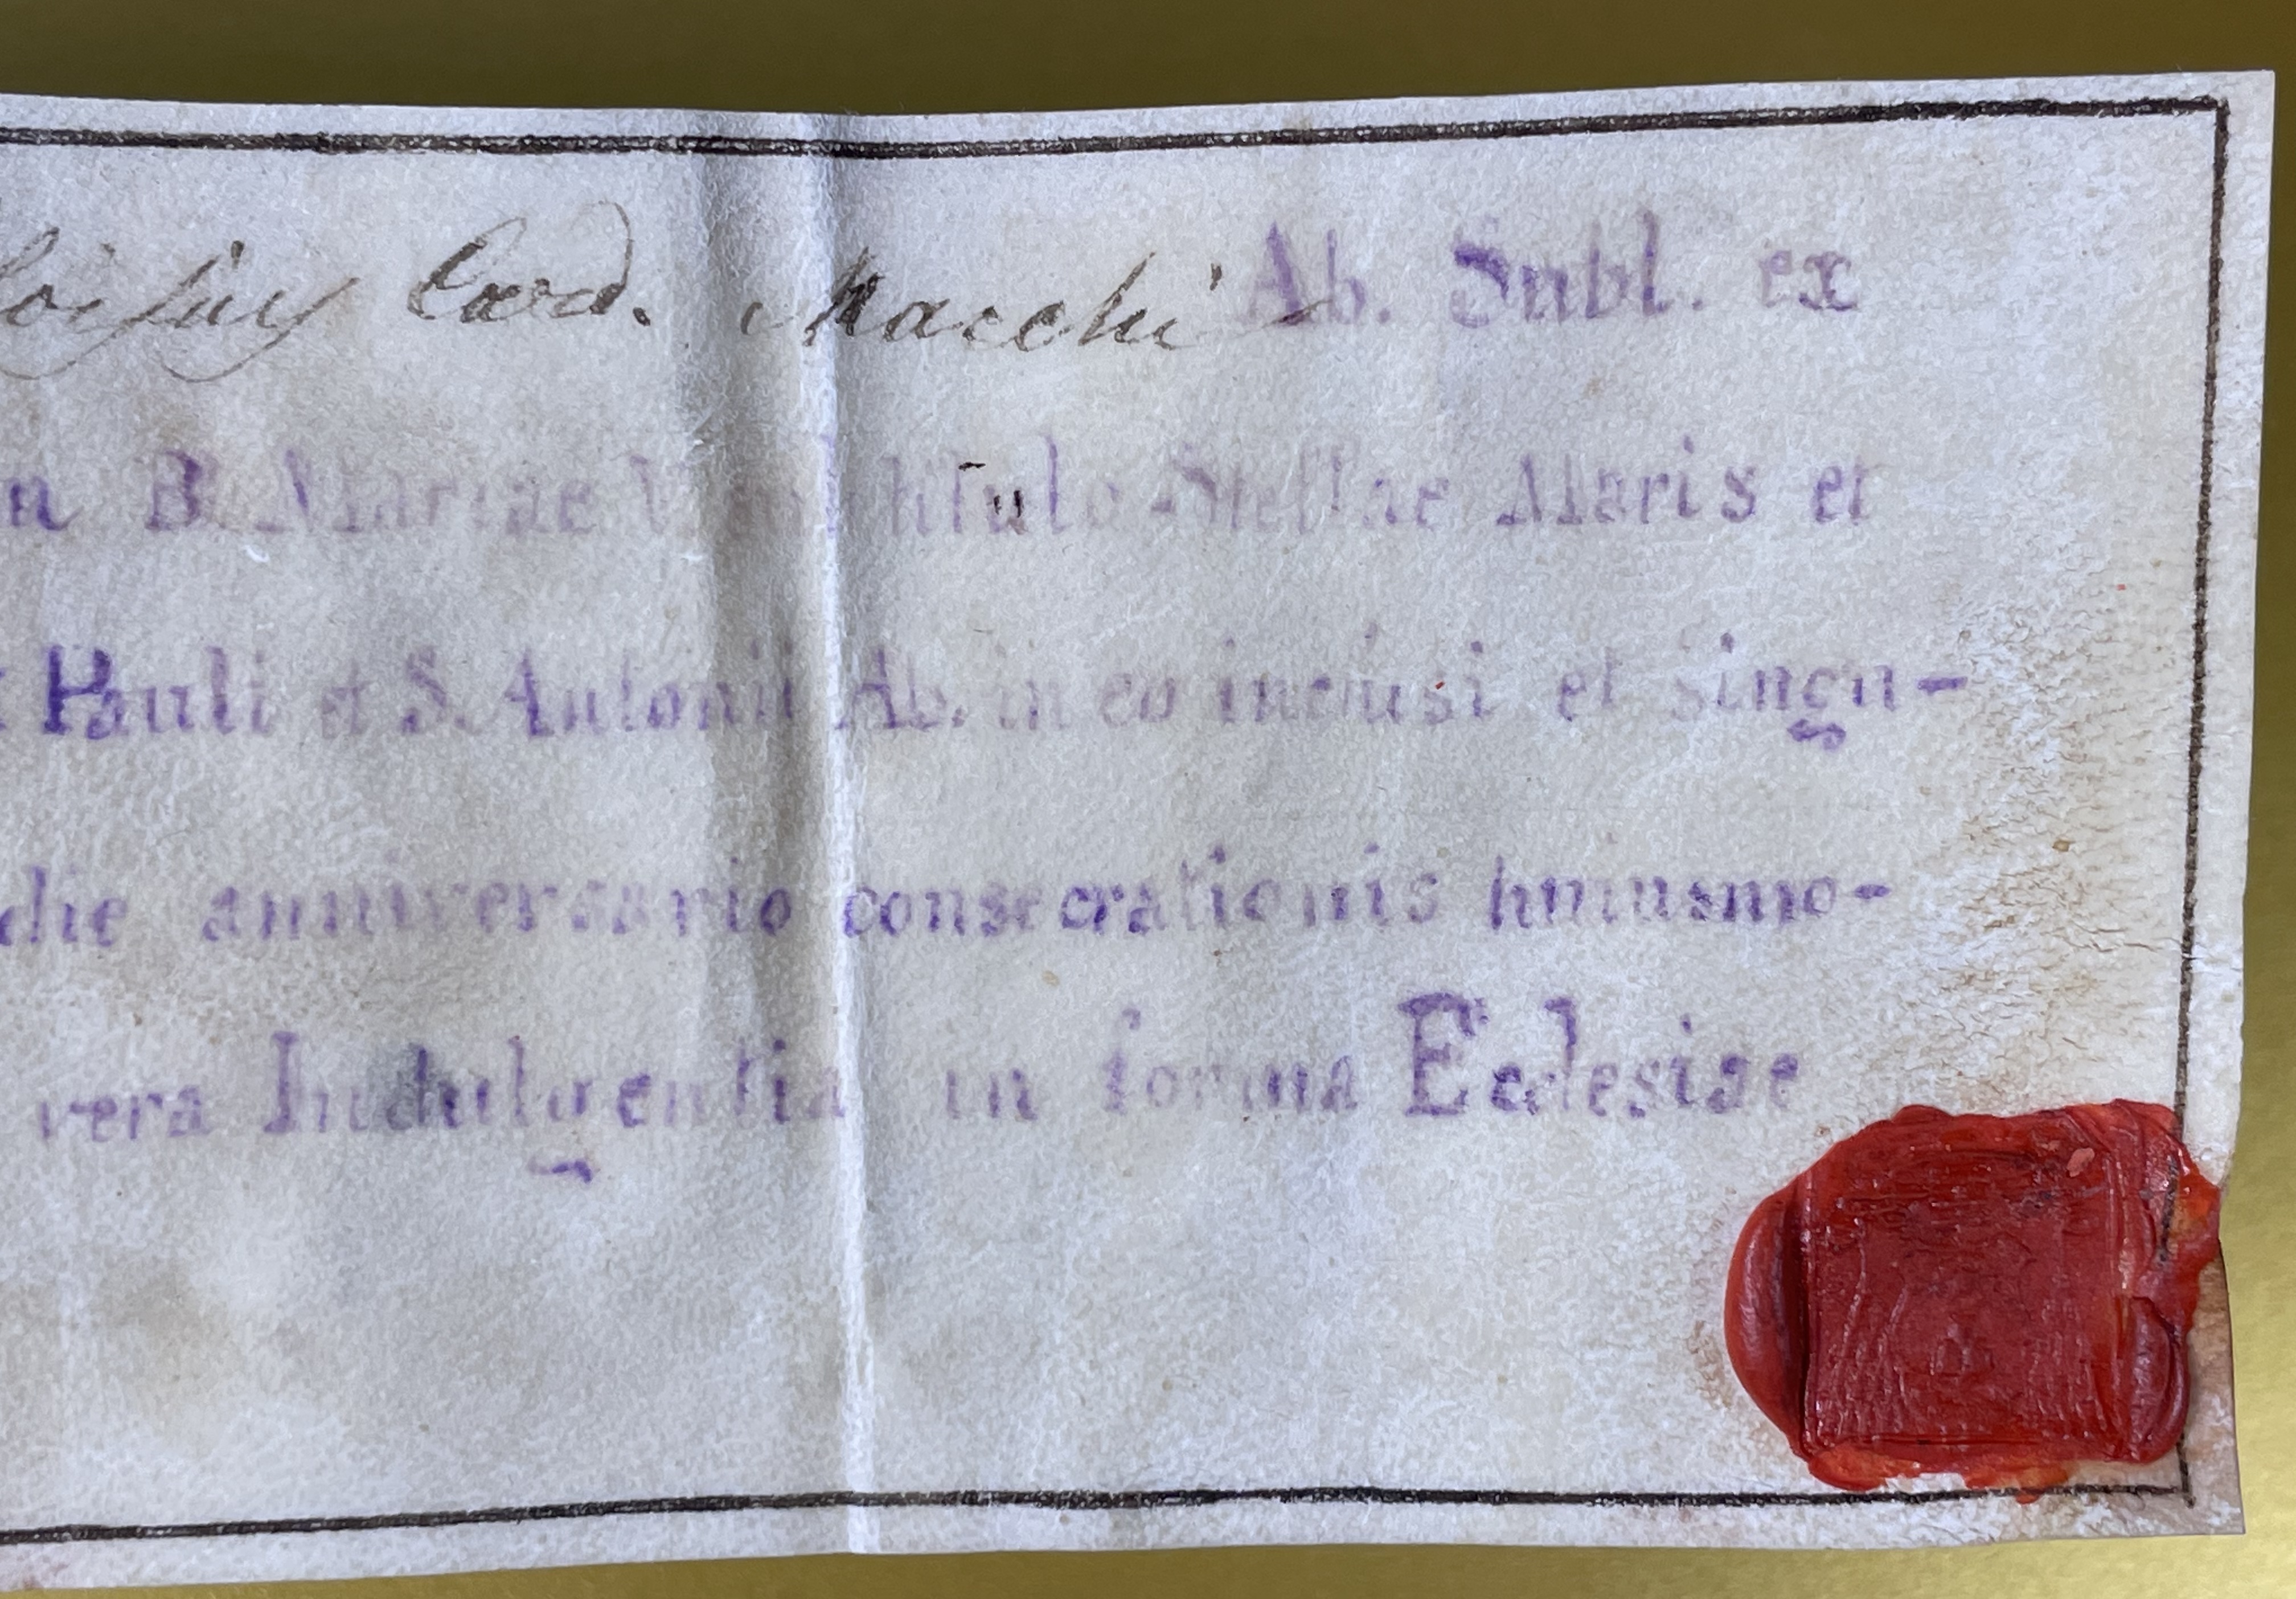 loisius Card. Macchi Ab. Subl. ex
n B. Mariae V titulo Stellae Maris et
Pauli et S. Antonii Ab. in eo inclusi et singu-
die anniversario consecrationis huiusmo-
vera Indulgentia in forma Ecclesiae